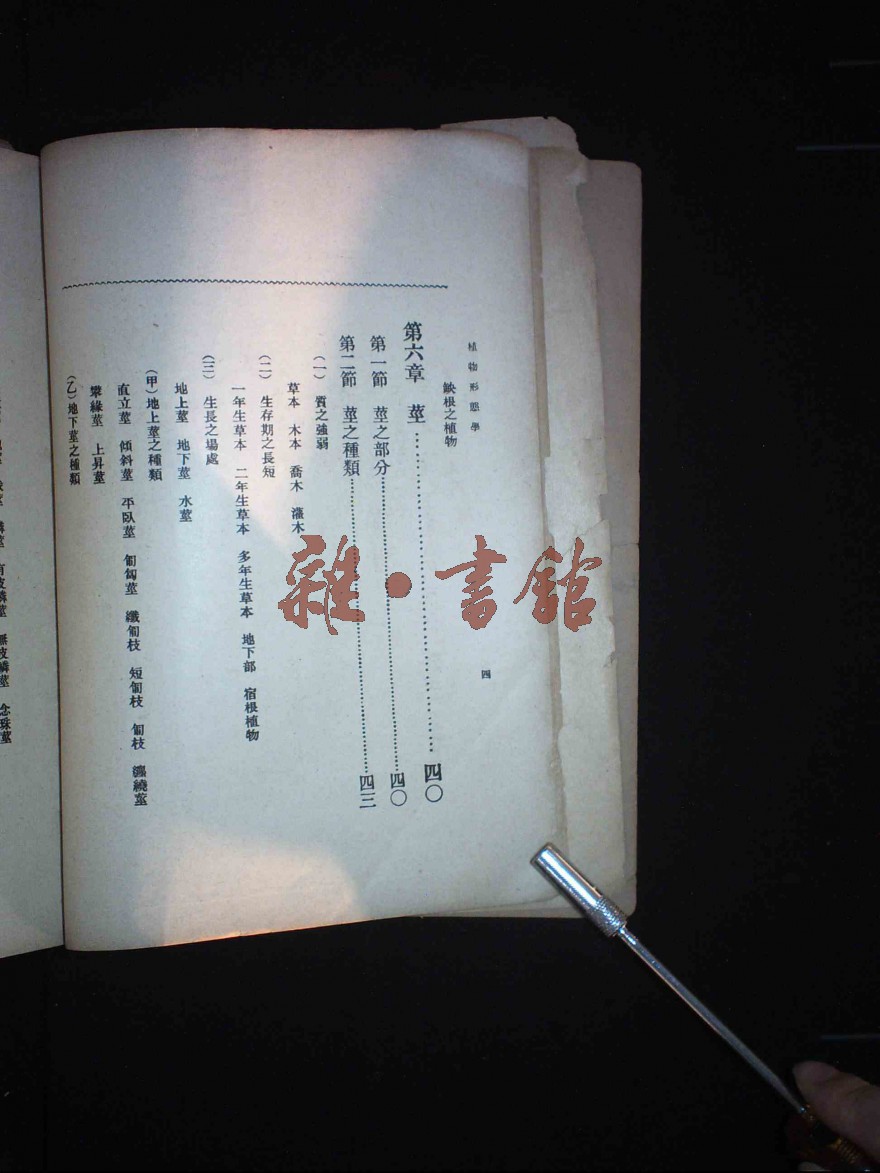 植物形態學
四
缺根之植物
第六章 莖 四〇
第一節 莖之部分 四〇
第二節 莖之種類 四三
(一) 質之強弱
草本 木本 喬木 灌木
(二) 生存期之長短
一年生草本 二年生草本 多年生草本 地下部 宿根植物
(三) 生長之場處
地上莖 地下莖 水莖
(甲)地上莖之種類
直立莖 傾斜莖 平臥莖 匍匐莖 纖匐枝 短匐枝 匐枝 纏繞莖
攀緣莖 上昇莖
(乙)地下莖之種類
鱗莖 有皮鱗莖 無皮鱗莖 念珠莖
雜·書館